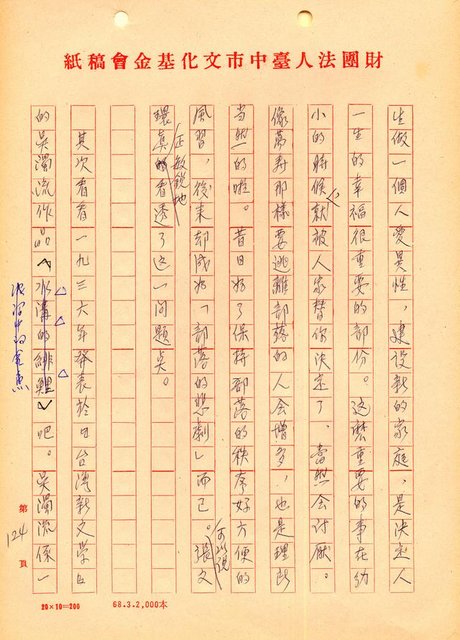 財團法人臺中市文化基金會稿紙
生做一個人愛異性,建設新的家庭,是決定人
一生的幸福很重要的部份。這麼重要的事在幼
小的時候就被人家替你決定了,當然會討厭。
像萬壽那樣要逃離部落的人會增多,也是理所
當然的啦。昔日為了保持部落的秩序好方便的
風習,後來卻成為「部落的悲劇」而已。可以說張文
環真正敏銳地看透了這一問題矣。
其次看看一九三六年發表於「台灣新文學」
的吳濁流作品〈水溝的緋鯉〉吧。吳濁流係一
泥沼中的金魚
第 124 頁
20×10=200
68.3.2,000本